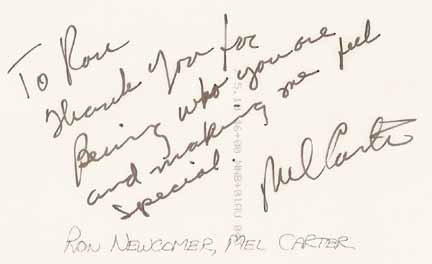 To Ron
Thank you for
Being who you are
and making me feel
special.
Mel Carter
RON NEWCOMER, MEL CARTER